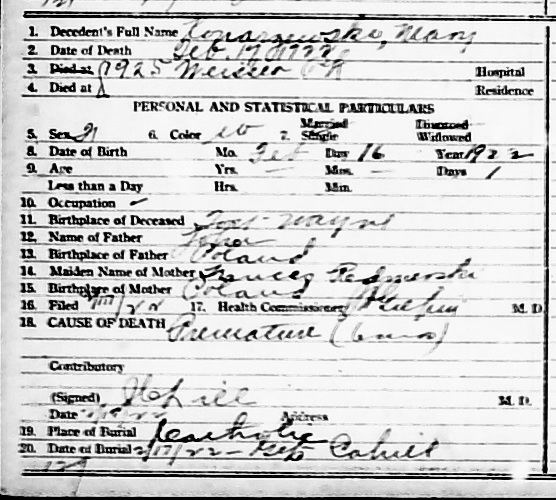 1. Decedent's Full Name Konarzewski, Mary
2. Date of Death Feb. 17, 1922
3. Died at 1925 Hospital
4. Died at Residence
PERSONAL AND STATISTICAL PARTICULARS
5. Sex 6. Color w 7. Married Single Divorced Widowed
8. Date of Birth Mo. Feb Day 16 Year 1922
9. Age Yrs. — Mos. — Days 1
Less than a Day Hrs. Min.
10. Occupation –
11. Birthplace of Deceased Fort Wayne
12. Name of Father
13. Birthplace of Father Poland
14. Maiden Name of Mother Frances
15. Birthplace of Mother Poland
16. Filed 2/17/22 17. Health Commissioner M. D.
18. CAUSE OF DEATH Premature (6 mos)
Contributory
(Signed) M. D.
Date Address
19. Place of Burial Catholic
20. Date of Burial 2/17/22 – Cahill